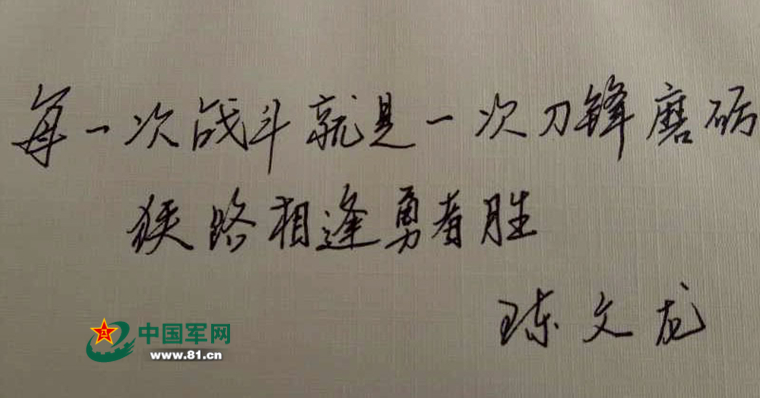 每一次战斗就是一次刀锋磨砺
狭路相逢勇者胜
陈文龙
中国军网
www.81.cn